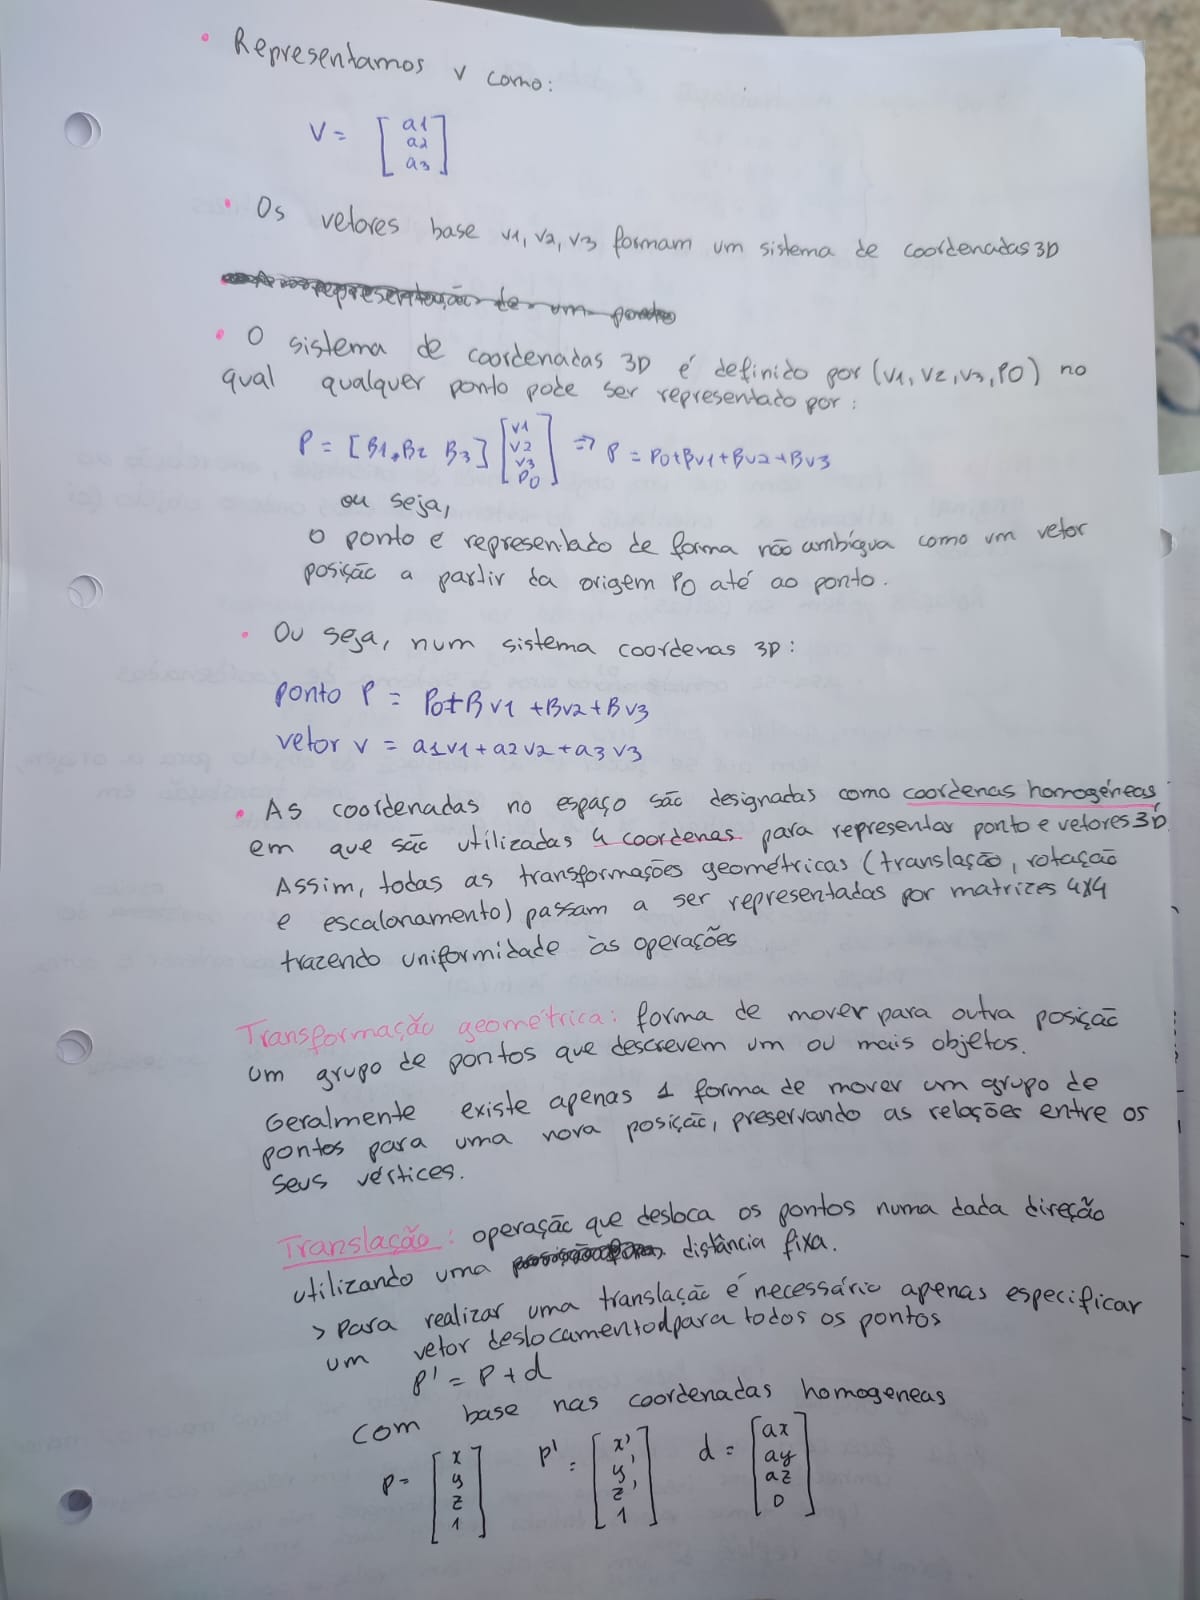 • Representamos v como:
V = [a1
a2
a3]
• Os vetores base v1, v2, v3 formam um sistema de coordenadas 3D
representação de um ponto
• O sistema de coordenadas 3D é definido por (v1, v2, v3, P0) no
qual qualquer ponto pode ser representado por:
P = [B1, B2 B3] [v1
v2
v3
P0] => P = P0+Bv1+Bv2+Bv3
ou seja,
o ponto e representado de forma não ambígua como um vetor
posição a partir da origem P0 até ao ponto.
• Ou seja, num sistema coordenas 3D:
ponto P = P0+Bv1+Bv2+Bv3
vetor v = a1v1+a2v2+a3v3
• As coordenadas no espaço são designadas como coordenas homogéneas,
em que são utilizadas 4 coordenas para representar ponto e vetores 3D.
Assim, todas as transformações geométricas (translação, rotação
e escalonamento) passam a ser representadas por matrizes 4x4
trazendo uniformidade às operações
Transformação geométrica: forma de mover para outra posição
um grupo de pontos que descrevem um ou mais objetos.
Geralmente existe apenas 1 forma de mover um grupo de
pontos para uma nova posição, preservando as relações entre os
seus vértices.
Translação: operação que desloca os pontos numa dada direção
utilizando uma distância fixa.
> para realizar uma translação é necessário apenas especificar
um vetor deslocamento d para todos os pontos
P' = P+d
com base nas coordenadas homogeneas
P= [x
y
z
1] P' = [x'
y'
z'
1] d = [ax
ay
az
0]